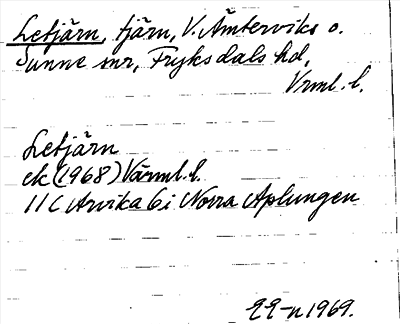 Letjärn, tjärn, V. Ämterviks o.
Sunne snr, Fryksdals hd,
Vrml. l.
Letjärn
ek (1968) Värml. l.
11C Arvika 6i Norra Aplungen
1969.